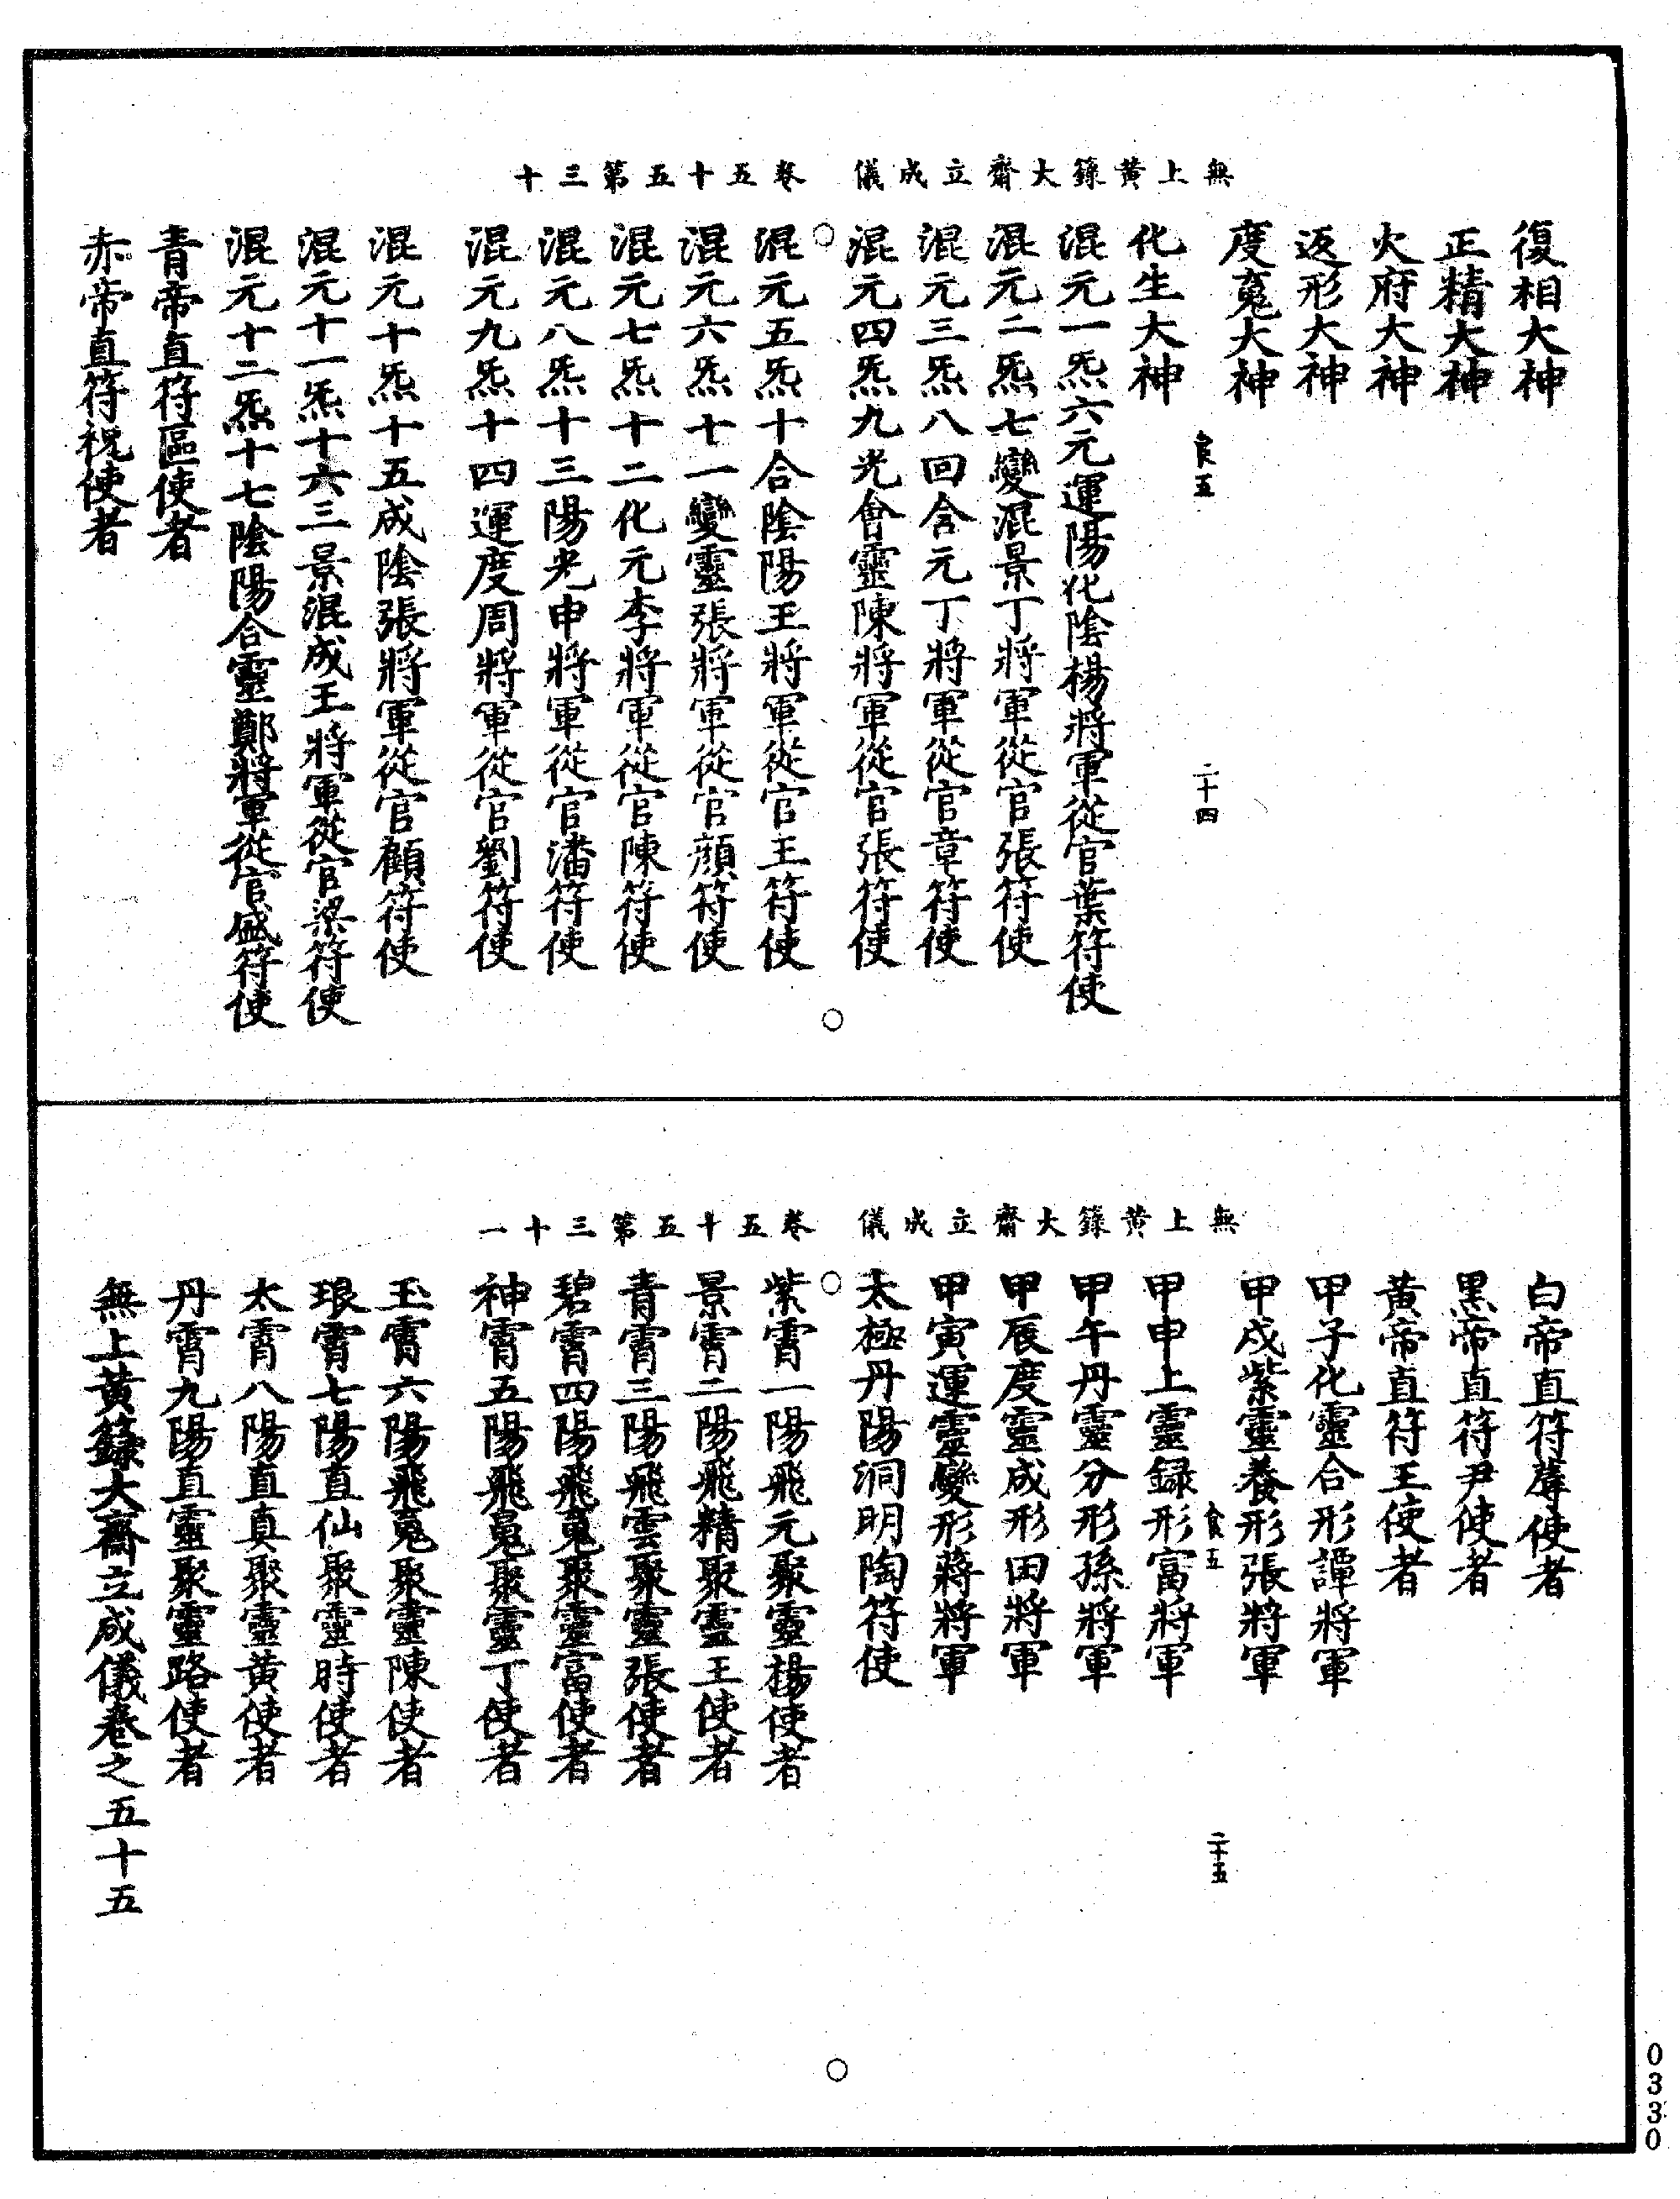 無上黃籙大齋立成儀　卷五十五第三十
復相大神
正精大神
火府大神
返形大神
度䰟大神
食五　二十四
化生大神
混元一炁六元運陽化陰楊將軍從官葉符使
混元二炁七變混景丁將軍從官張符使
混元三炁八回含元丁將軍從官章符使
混元四炁九光會靈陳將軍從官張符使
混元五炁十合陰陽王將軍從官王符使
混元六炁十一變靈張將軍從官顔符使
混元七炁十二化元李將軍從官陳符使
混元八炁十三陽光申將軍從官潘符使
混元九炁十四運度周將軍從官劉符使
混元十炁十五成陰張將軍從官顧符使
混元十一炁十六三景混成王將軍從官梁符使
混元十二炁十七陰陽合靈鄭將軍從官盛符使
青帝直符區使者
赤帝直符祝使者
無上黃籙大齋立成儀　卷五十五第三十一
白帝直符辜使者
黑帝直符尹使者
黃帝直符王使者
甲子化靈合形譚將軍
甲戌紫靈養形張將軍
食五　二十五
甲申上靈録形富將軍
甲午丹靈分形孫將軍
甲辰度靈成形田將軍
甲寅運靈變形蔣將軍
太極丹陽洞明陶符使
紫霄一陽飛元聚靈楊使者
景霄二陽飛精聚靈王使者
青霄三陽飛雲聚靈張使者
碧霄四陽飛䰟聚靈富使者
神霄五陽飛䰟聚靈丁使者
玉霄六陽飛䰟聚靈陳使者
琅霄七陽直仙聚靈時使者
太霄八陽直真聚靈黃使者
丹霄九陽直靈聚靈路使者
無上黃籙大齋立成儀卷之五十五
0330